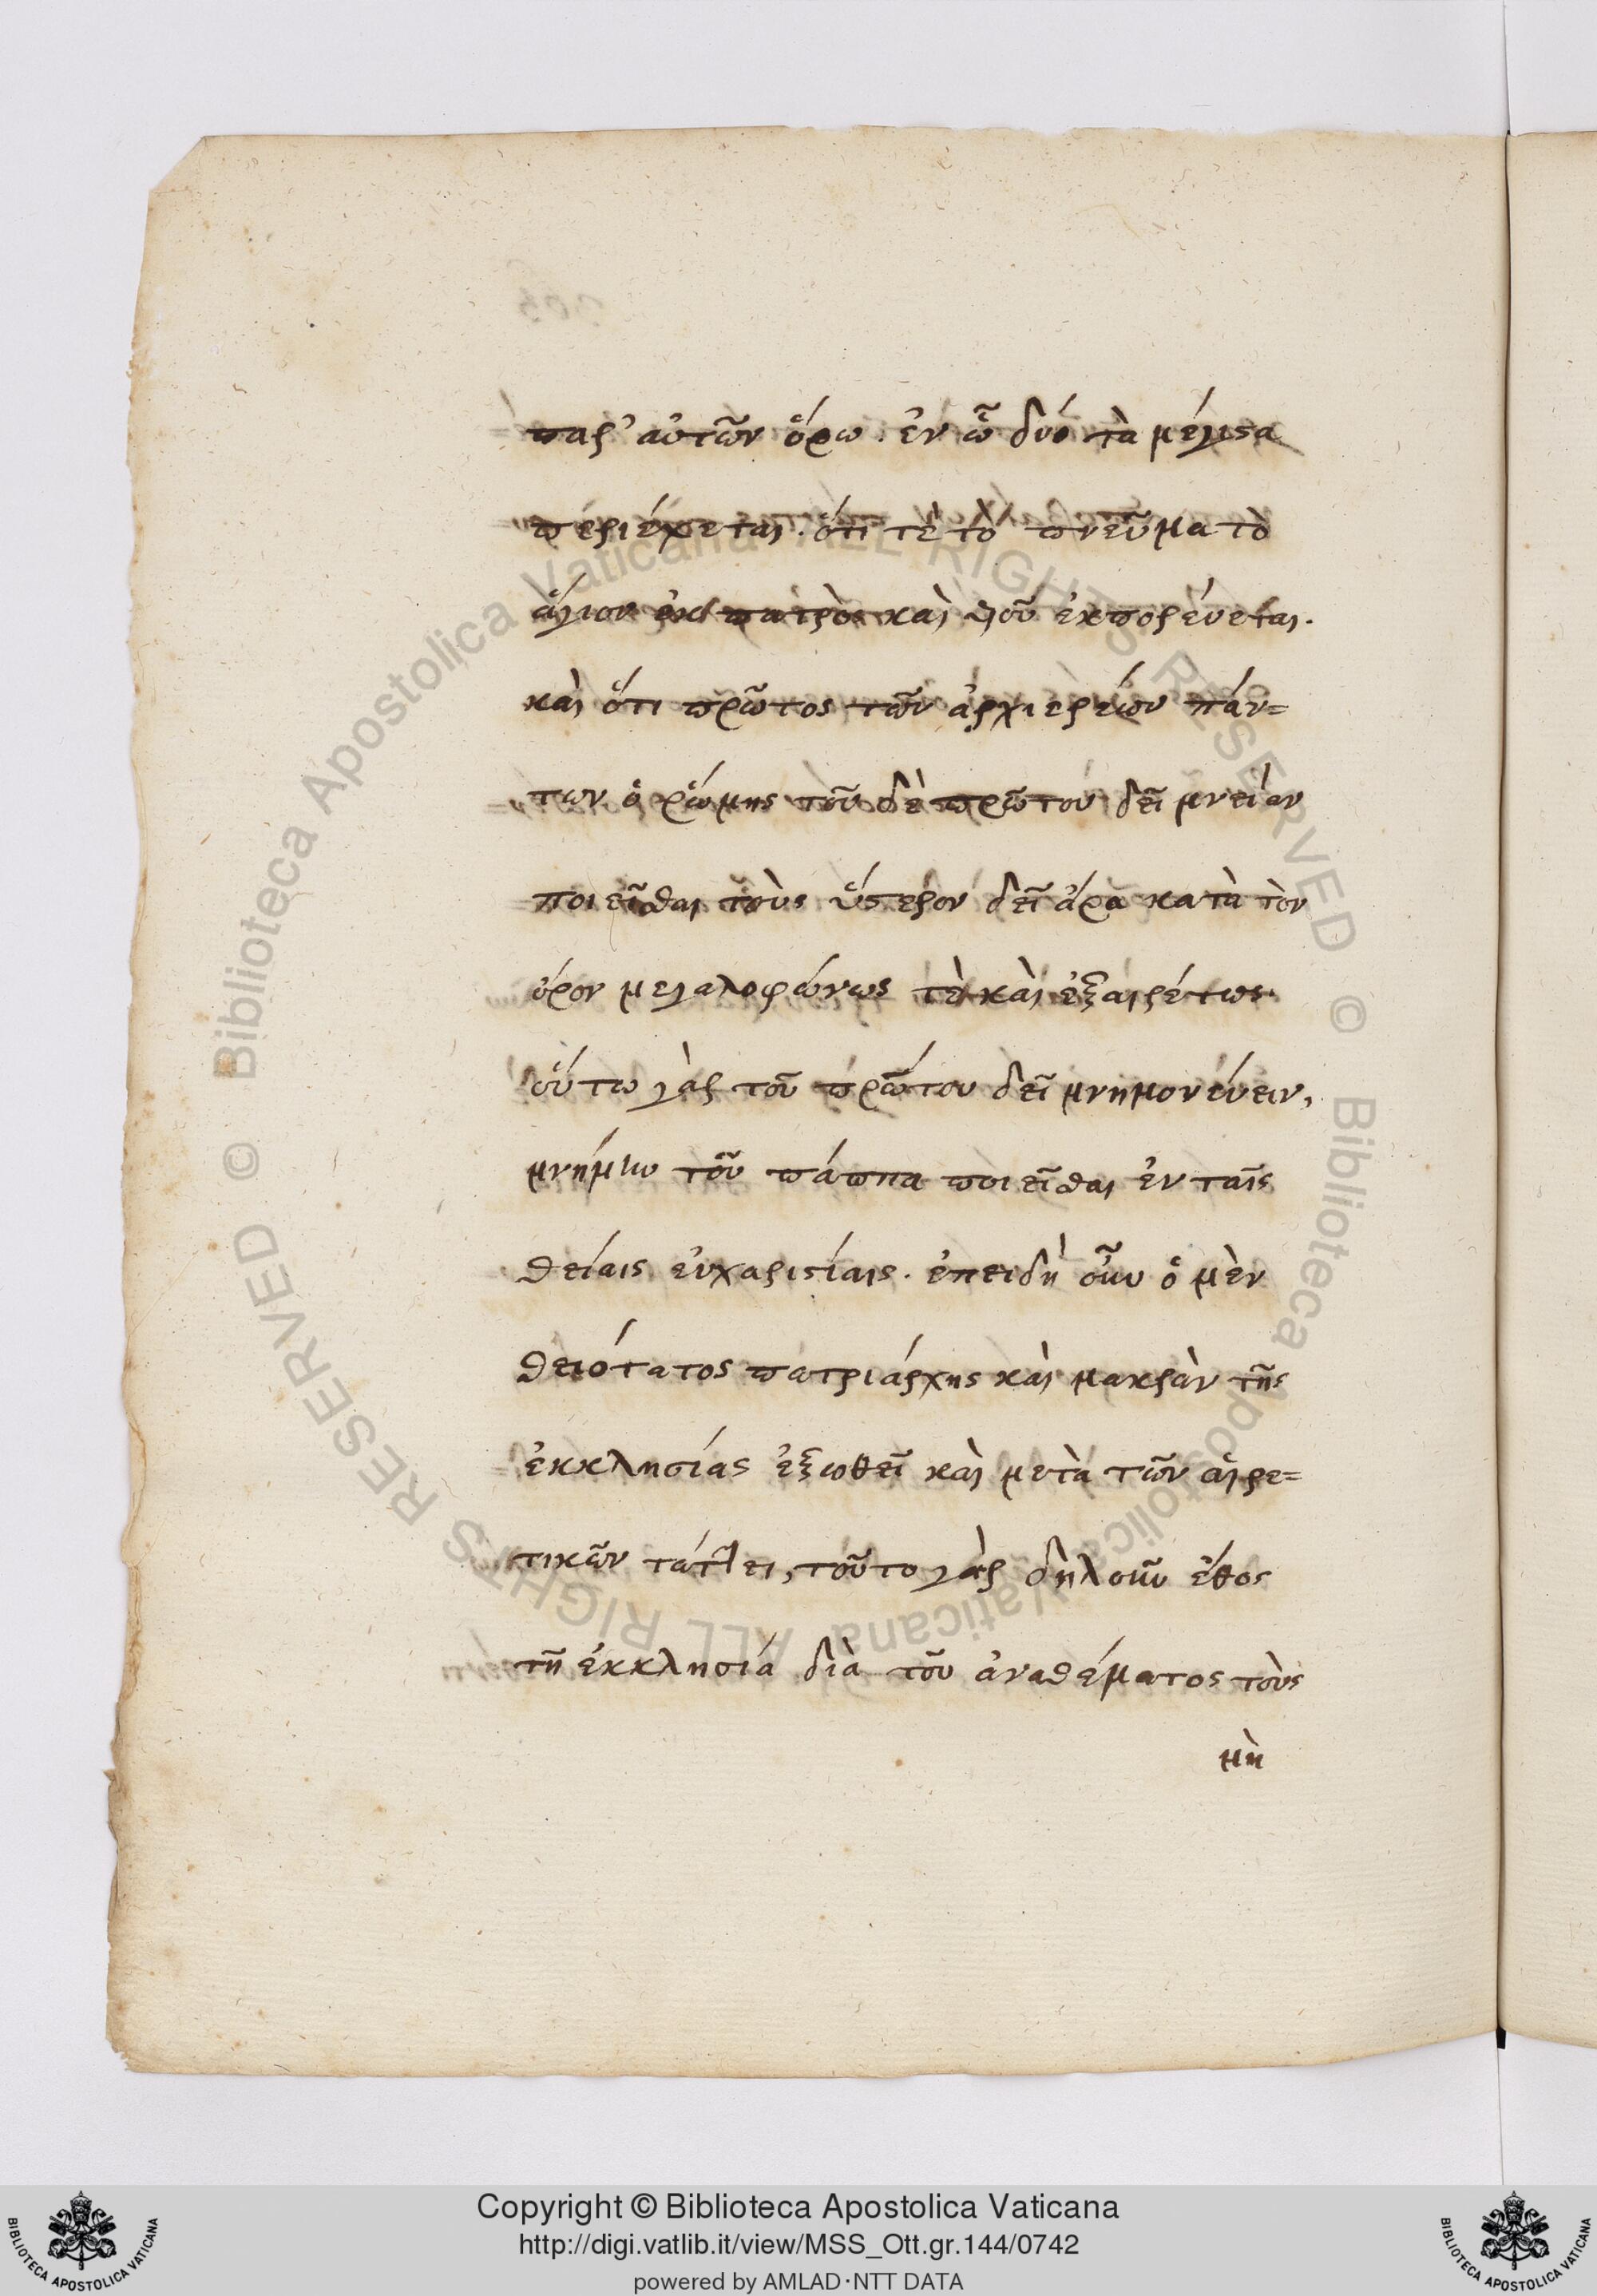 παρ' αὐτῶν ὅρω. ἐν ὧ δύο τὰ μέγιστα
περιέχεται. ὅτι τὲ τὸ πνεῦμα τὸ
ἅγιον ἐκ πατρὸς καὶ υἱοῦ ἐκπορεύεται.
καὶ ὅτι πρῶτος τῶν ἀρχιερέων πάν=
των ὁ ῥώμης τοῦ δὲ πρῶτου δεῖ μνείαν
ποιεῖσθαι τοὺς ὕστερον δεῖ ἄρα κατὰ τὸν
ὅρον μεγαλοφώνως τὲ καὶ ἐξαιρέτως
οὕτω γὰρ τοῦ πρώτου δεῖ μνημονεύειν,
μνήμην τοῦ πάππα ποιεῖσθαι ἐν ταῖς
θείαις εὐχαριστίαις. ἐπειδὴ οὖν ὁ μὲν
θειότατος πατριάρχης καὶ μακρὰν τῆς
ἐκκλησίας ἐξωθεῖ καὶ μετὰ τῶν αἱρε=
τικῶν τάττει, τοῦτο γὰρ δηλοῦν ἔθος
τῆ ἐκκλησία διὰ τοῦ ἀναθέματος τοὺς
μὴ
© Biblioteca Apostolica Vaticana ALL RIGHTS RESERVED © Biblioteca Apostolica Vaticana ALL RIGHTS RESERVED
Copyright © Biblioteca Apostolica Vaticana
http://digi.vatlib.it/view/MSS_Ott.gr.144/0742
powered by AMLAD·NTT DATA
BIBLIOTECA APOSTOLICA VATICANA
BIBLIOTECA APOSTOLICA VATICANA